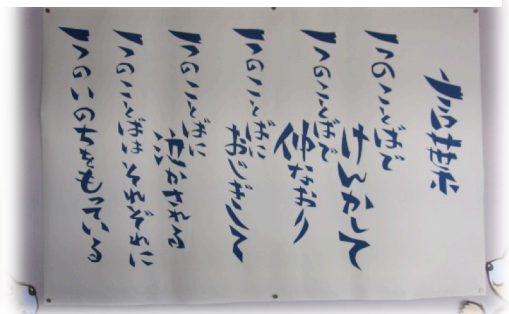 一つのことばで
けんかして
一つのことばで
仲なおり
一つのことばに
おじぎして
一つのことばに
泣かされる
一つのことばはそれぞれに
一つのいのちをもっている